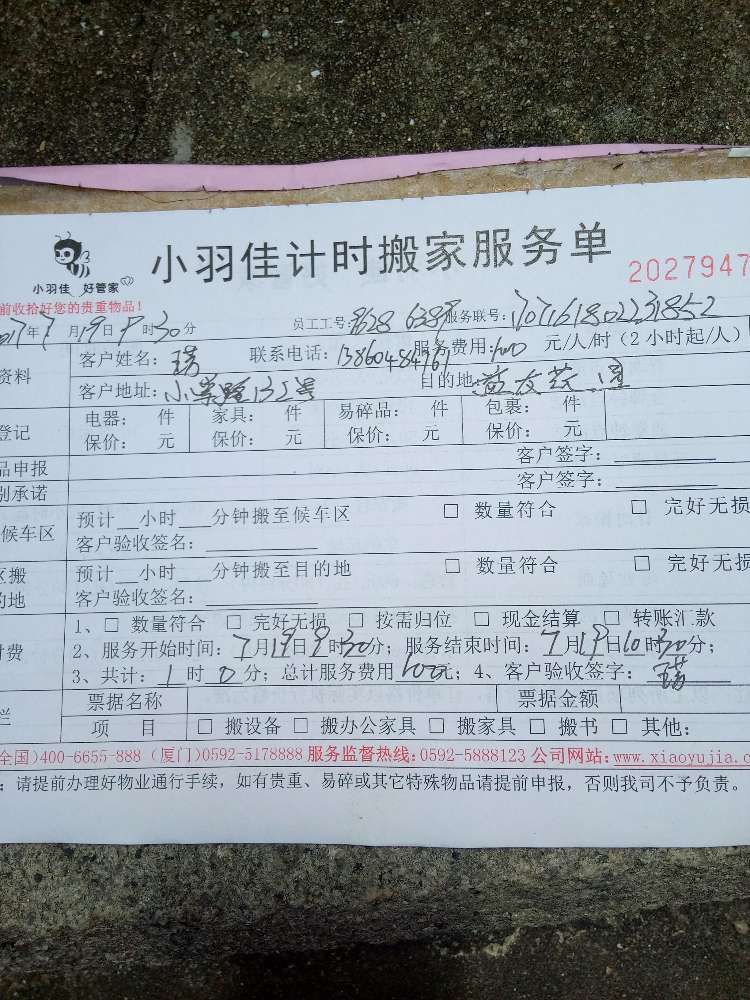 小羽佳计时搬家服务单
小羽佳 好管家
2027947
前收拾好您的贵重物品!
年7月19日9时30分 员工工号: 服务联号:
资料 客户姓名: 联系电话:13860484761 服务费用:100元/人/时(2小时起/人)
客户地址:小学路132号 目的地:
登记 电器: 件 家具: 件 易碎品: 件 包裹: 件
保价: 元 保价: 元 保价: 元 保价: 元
品申报 客户签字:
别承诺 客户签字:
候车区 预计__小时___分钟搬至候车区 □ 数量符合 □ 完好无损
客户验收签名:
区搬 预计__小时___分钟搬至目的地 □ 数量符合 □ 完好无损
的地 客户验收签名:
1、□ 数量符合 □ 完好无损 □ 按需归位 □ 现金结算 □ 转账汇款
付费 2、服务开始时间:7月19日9时30分;服务结束时间:7月19日10时30分;
3、共计:1时0分;总计服务费用100元;4、客户验收签字:
栏 票据名称 票据金额
项 目 □ 搬设备 □ 搬办公家具 □ 搬家具 □ 搬书 □ 其他:
全国)400-6655-888(厦门)0592-5178888 服务监督热线:0592-5888123 公司网站:www.xiaoyujia.com
:请提前办理好物业通行手续,如有贵重、易碎或其它特殊物品请提前申报,否则我司不予负责。